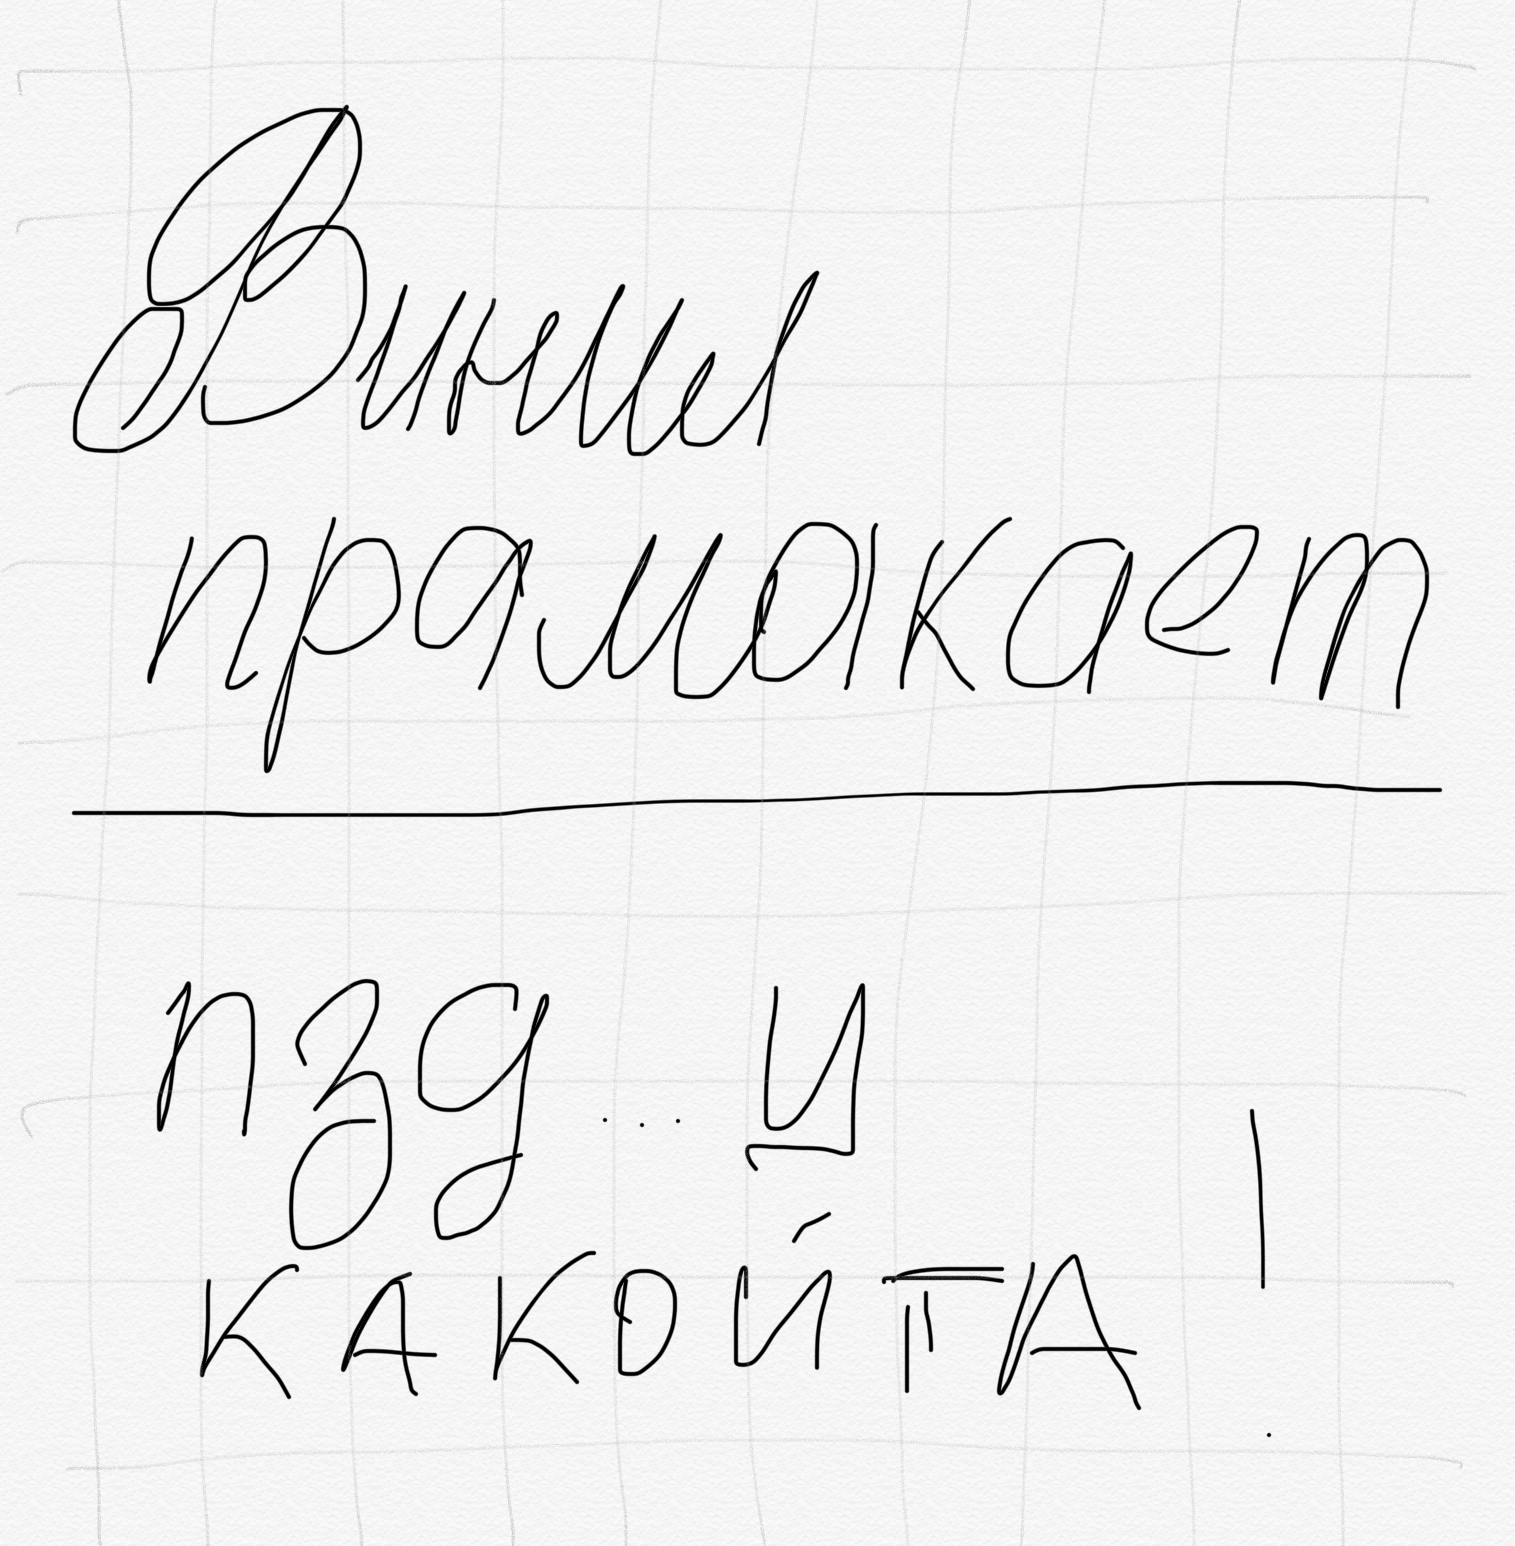 Винил
прамокает
пзд... ц
КАКОЙТА!